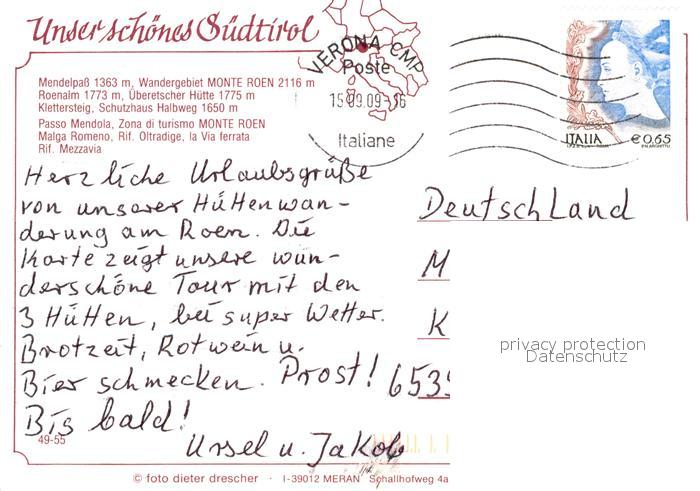 Unser schönes Südtirol
Mendelpaß 1363 m, Wandergebiet MONTE ROEN 2116 m
Roenalm 1773 m, Überetscher Hütte 1775 m
Klettersteig, Schutzhaus Halbweg 1650 m
Passo Mendola, Zona di turismo MONTE ROEN
Malga Romeno, Rif. Oltradige, la Via ferrata
Rif. Mezzavia
VERONA CMP
Poste
15.09.09-16
Italiane
ITALIA € 0,65
Herzliche Urlaubsgrüße
von unserer Hüttenwan-
derung am Roen. Die
Karte zeigt unsere wun-
derschöne Tour mit den
3 Hütten, bei super Wetter.
Brotzeit, Rotwein u.
Bier schmecken. Prost!
Bis bald!
Ursel u. Jakob
Deutschland
M
K
6535
privacy protection
Datenschutz
49-55
© foto dieter drescher · I-39012 MERAN Schallhofweg 4a